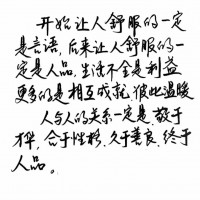 开始让人舒服的一定
是言语,后来让人舒服的一
定是人品,生活不全是利益
更多的是相互成就,彼此温暖
人与人的关系一定是:敬于
才华,合于性格,久于善良,终于
人品。